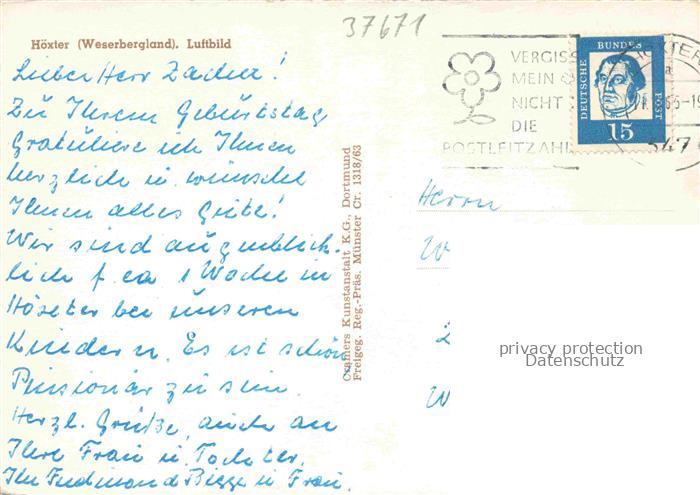 37671
Höxter (Weserbergland). Luftbild
Lieber Herr Zacher!
Zu Ihrem Geburtstag
Gratuliere ich Ihnen
herzlich u. wünsche
Ihnen alles Gute!
Wir sind augenblick-
lich f. ca 1 Woche in
Höxter bei unseren
Kindern. Es ist schön
Pensionär zu sein.
Herzl. Grüße, auch an
Ihre Frau u. Tochter,
Ihr Ferdinand u. Frau.
Cramers Kunstanstalt K.G., Dortmund
Freigeg. Reg.-Präs. Münster Cr. 1318/63
VERGISS
MEIN
NICHT
DIE
POSTLEITZAHL
HÖXTER
547
DEUTSCHE BUNDESPOST
15
Herrn
W
W
privacy protection
Datenschutz